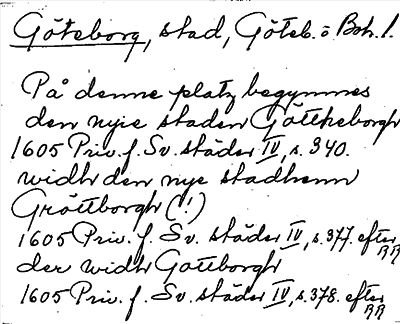 Göteborg, stad, Göteb. o Boh. l.
På denne platz begynnes
den nyie staden Göttheborgh
1605 Priv. f. Sv. städer IV, s. 340.
widh den nye stadhenn
Gröttborgh (!)
1605 Priv. f. Sv. städer IV, s. 377. efter RR
der widh Gottborgh
1605 Priv. f. Sv. städer IV, s. 378. efter RR